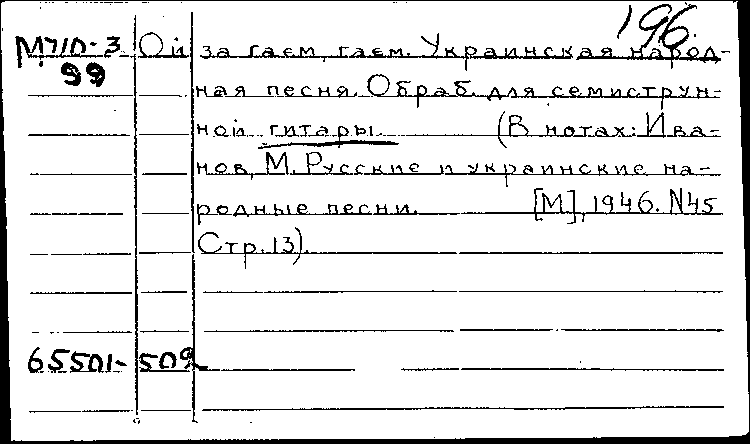 196.
М710-3 Ой за гаєм, гаєм. Украинская народ-
99 ная песня. Обраб. для семиструн-
ной гитары. (В нотах: Ива-
нов, М. Русские и украинские на-
родные песни. [М.], 1946. N45
Стр. 13).
65501- 509